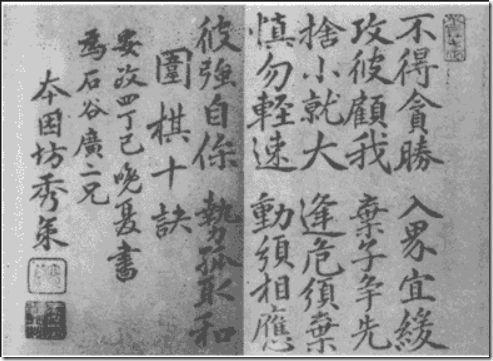 不得貪勝 入界宜緩
攻彼顧我 棄子争先
捨小就大 逢危須棄
慎勿輕速 動須相應
彼強自保 勢孤取和
圍棋十訣
安政四丁巳晚夏書
為石谷廣二兄
本因坊秀策